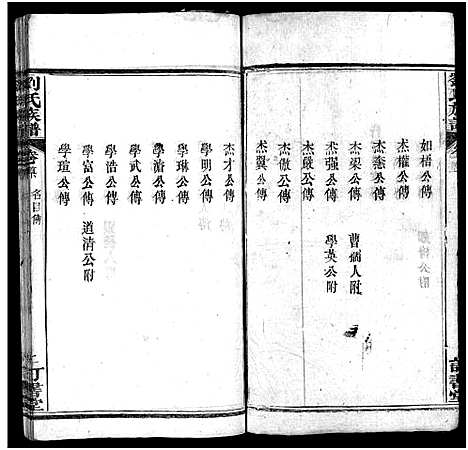 如梧公傳
杰權公傳
杰憲公傳
杰梁公傳 曹孺人附
杰强公傳 學英公附
杰嚴公傳
杰傲公傳
杰翼公傳
杰才公傳
學明公傳
學琳公傳
學濬公傳
學武公傳
學浩公傳
學富公傳 道清公附
學瑄公傳
劉氏族譜
名目傳